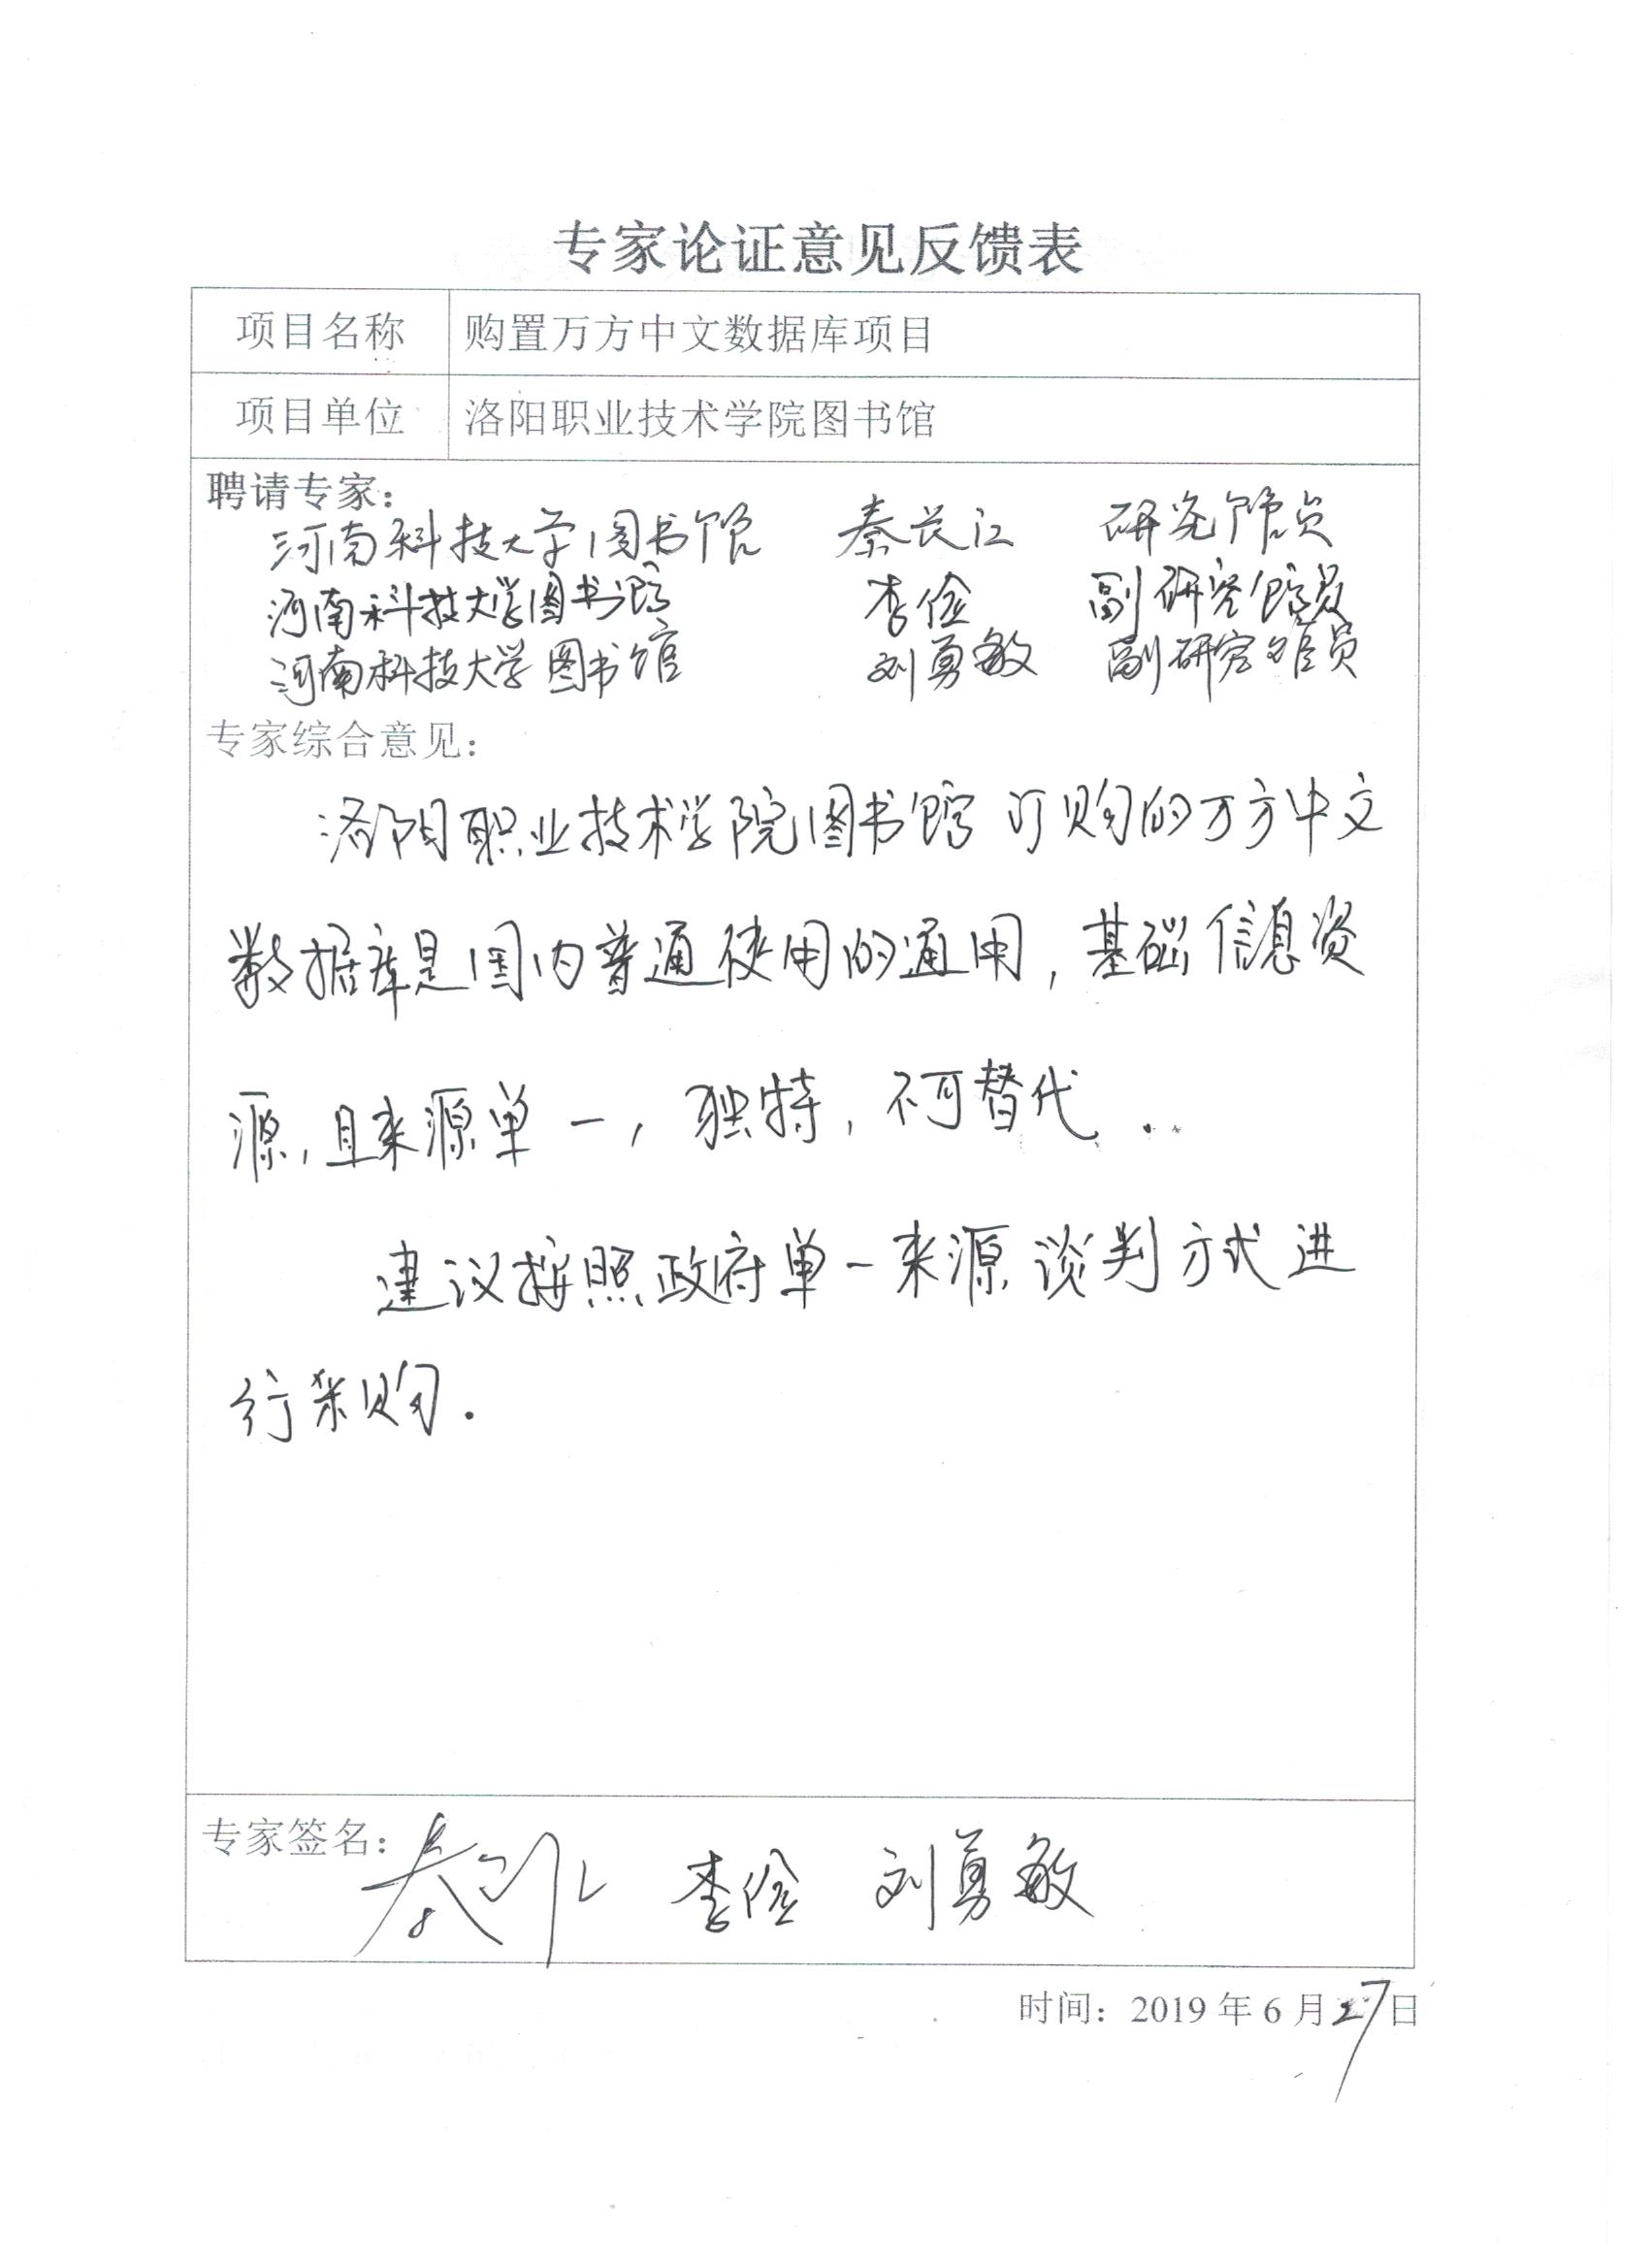 专家论证意见反馈表
项目名称 购置万方中文数据库项目
项目单位 洛阳职业技术学院图书馆
聘请专家：
河南科技大学图书馆 秦长江 研究馆员
河南科技大学图书馆 李俭 副研究馆员
河南科技大学图书馆 刘勇敏 副研究馆员
专家综合意见：
洛阳职业技术学院图书馆订购的万方中文
数据库是国内普通使用的通用，基础信息资
源，且来源单一，独特，不可替代．
建议按照政府单一来源谈判方式进
行采购．
专家签名： 秦长江 李俭 刘勇敏
时间：2019年6月27日